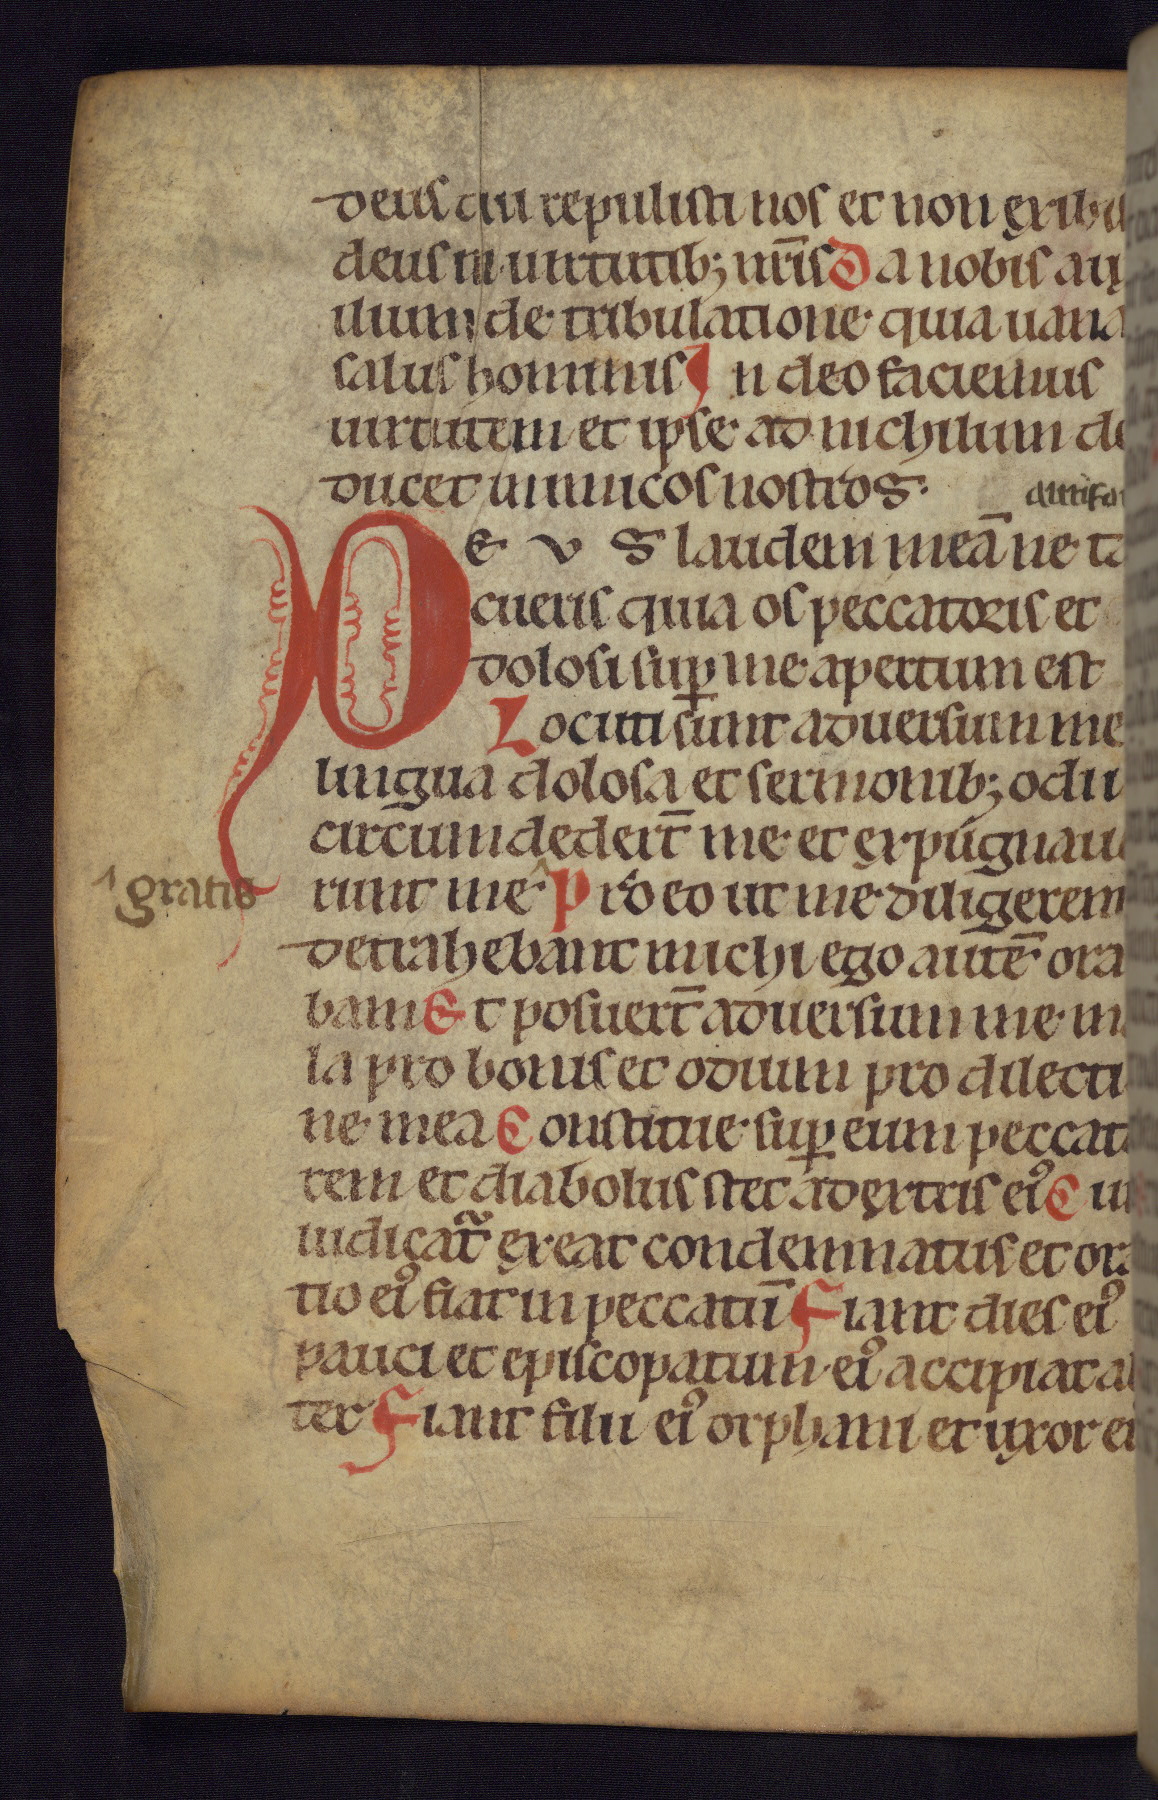 deus qui repulisti nos et non exibi
deus in uirtutib; nr̄is Da nobis aux
ilium de tribulatione quia uana
salus hominis In deo faciemus
uirtutem et ipse ad nichilum de
ducet inimicos nostros.
DEUS laudem meā ne ta
cueris quia os peccatoris et
dolosi suꝑ me apertum est
Locuti sunt aduersum me
lingua dolosa et sermonib; odii
circumdederūt me et expugnaue
runt me Pro eo ut me diligerem
gratis
detrahebant michi ego autē ora
bam Et posuerūt aduersum me ma
la pro bonis et odium pro dilecti
ne mea Constitue suꝑ eum peccato
rem et diabolus stet adextris eiꝰ Cu
iudicat᷑ exeat condemnatus et ora
tio eiꝰ fiat in peccatū Fiant dies eiꝰ
pauci et episcopatum eiꝰ accipiat al
ter Fiant filii eiꝰ orphani et uxor ei